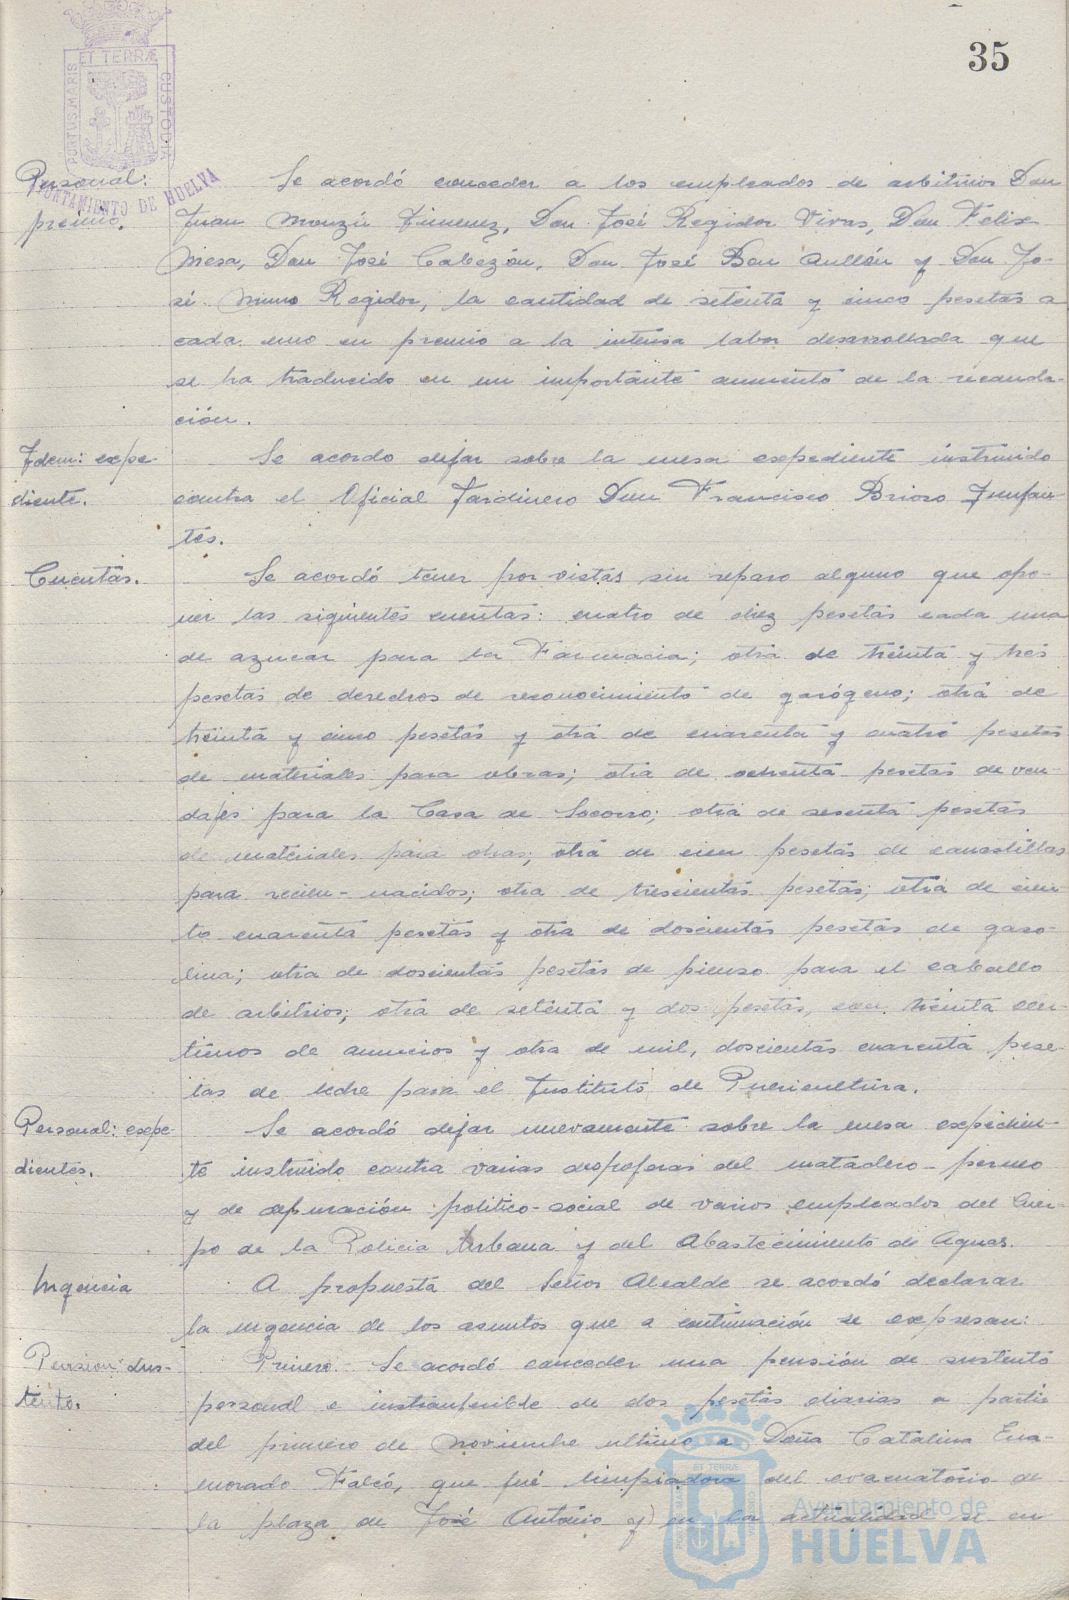 35
PORTUS MARIS ET TERRÆ CUSTODIA
AYUNTAMIENTO DE HUELVA
Personal:
premio.
Se acordó conceder a los empleados de arbitrios Don
Juan Monzú Jimenez, Don José Regidor Vivas, Don Felix
Mesa, Don José Cabezón, Don José Ben Aullón y Don Jo-
sé Nuno Regidor, la cantidad de setenta y cinco pesetas a
cada uno en premio a la intensa labor desarrollada que
se ha traducido en un importante aumento de la recauda-
ción.
Idem: expe-
diente.
Se acordo dejar sobre la mesa expediente instruido
contra el Oficial Jardinero Don Francisco Brioso Junfan-
tes.
Cuentas.
Se acordó tener por vistas sin reparo alguno que opo-
ner las siguientes cuentas: cuatro de diez pesetas cada una
de azucar para la Farmacia; otra de treinta y tres
pesetas de derechos de reconocimiento de gasógeno; otra de
treinta y cinco pesetas y otra de cuarenta y cuatro pesetas
de materiales para obras; otra de ochenta pesetas de ven-
dajes para la Casa de Socorro; otra de sesenta pesetas
de materiales para obras; otra de cien pesetas de canastillas
para recien-nacidos; otra de trescientas pesetas; otra de cien-
to cuarenta pesetas y otra de doscientas pesetas de gaso-
lina; otra de doscientas pesetas de pienso para el caballo
de arbitrios; otra de setenta y dos pesetas, con treinta cen-
timos de anuncios y otra de mil, doscientas cuarenta pese-
tas de leche para el Instituto de Puericultura.
Personal: expe-
dientes.
Se acordó dejar nuevamente sobre la mesa expedien-
te instruido contra varias despojeras del matadero-permo
y de depuración politico-social de varios empleados del Cuer-
po de la Policia Urbana y del Abastecimiento de Aguas.
Urgencia
A propuesta del Señor Alcalde se acordó declarar
la urgencia de los asuntos que a continuación se expresan:
Pension: Sus-
tento.
Primero: Se acordó conceder una pensión de sustento
personal e instranferible de dos pesetas diarias a partir
del primero de Noviembre ultimo a Doña Catalina Ena-
morado Falcó, que fué limpiadora del evacuatorio de
la plaza de José Antonio y en la actualidad se en
Ayuntamiento de
HUELVA